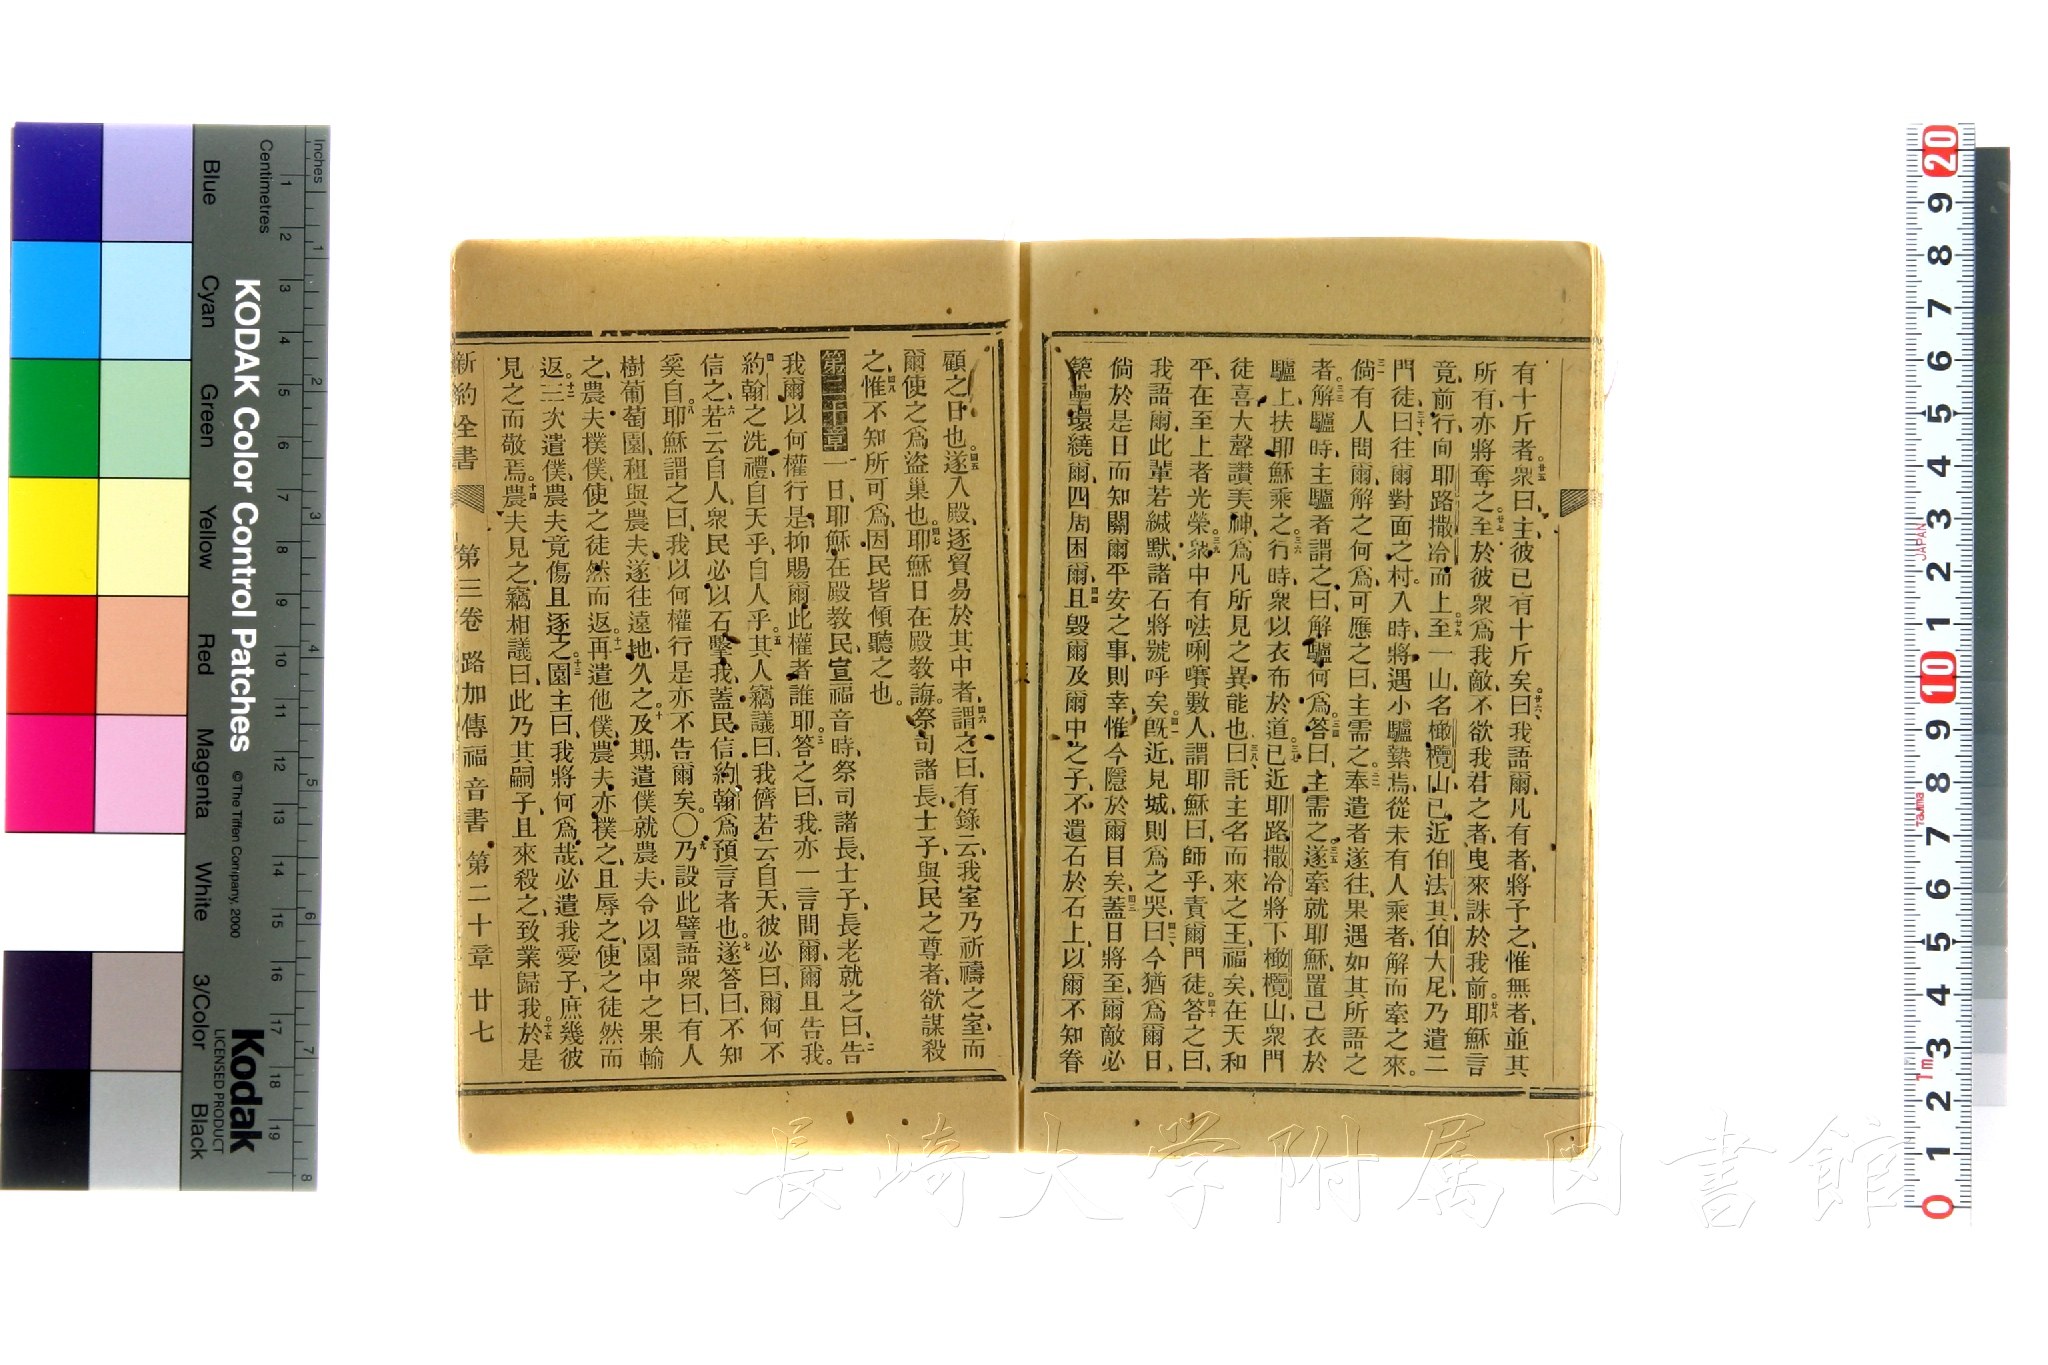 有十斤者、廿五衆曰、主、彼已有十斤矣、廿六曰、我語爾、凡有者、將予之、惟無者、並其
所有、亦將奪之、廿七至於彼衆爲我敵、不欲我君之者、曳來誅於我前、廿八耶穌言
竟、前行、向耶路撒冷而上、廿九至一山名橄欖山、已近伯法其、伯大尼、乃遣二
門徒、三十曰、往爾對面之村、入時、將遇小驢縶焉、從未有人乘者、解而牽之來。
三一倘有人問爾、解之何爲、可應之曰、主需之、三二奉遣者遂往、果遇如其所語之
者、三三解驢時、主驢者謂之曰、解驢何爲、三四答曰、主需之、三五遂牽就耶穌、置己衣於
驢上、扶耶穌乘之、三六行時、衆以衣布於道、三七已近耶路撒冷、將下橄欖山、衆門
徒喜、大聲讚美神、爲凡所見之異能也、三八曰、託主名而來之王、福矣、在天和
平、在至上者光榮、三九衆中有㕸唎㘔數人、謂耶穌曰、師乎、責爾門徒、四十答之曰、
我語爾、此輩若緘默、諸石將號呼矣、四一旣近、見城、則爲之哭、四二曰、今猶爲爾日、
倘於是日而知關爾平安之事、則幸、惟今隱於爾目矣、四三蓋日將至、爾敵必
築壘環繞爾、四周困爾、四四且毀爾及爾中之子、不遺石於石上、以爾不知眷
顧之日也、四五遂入殿、逐貿易於其中者、四六謂之曰、有錄云、我室乃祈禱之室、而
爾使之爲盜巢也、四七耶穌日在殿教誨、祭司諸長、士子、與民之尊者、欲謀殺
之、四八惟不知所可爲、因民皆傾聽之也。
第二十章 一日、耶穌在殿教民、宣福音時、祭司諸長、士子、長老就之曰、二告
我爾以何權行是、抑賜爾此權者誰耶、三答之曰、我亦一言問爾、爾且告我。
四約翰之洗禮、自天乎、自人乎、五其人竊議曰、我儕若云自天、彼必曰、爾何不
信之、六若云自人、衆民必以石擊我、蓋民信約翰爲預言者也、七遂答曰、不知
奚自、八耶穌謂之曰、我以何權行是、亦不告爾矣。〇九乃設此譬語衆曰、有人
樹葡萄園、租與農夫、遂往遠地久之、十及期、遣僕就農夫、令以園中之果輸
之、農夫撲僕、使之徒然而返、十一再遣他僕、農夫亦撲之、且辱之、使之徒然而
返、十二三次遣僕、農夫竟傷且逐之、十三園主曰、我將何爲哉、必遣我愛子、庶幾彼
見之而敬焉、十四農夫見之、竊相議曰、此乃其嗣子、且來殺之、致業歸我、十五於是
新約全書 第三卷 路加傳福音書 第二十章 廿七
Inches
Centimetres
Blue Cyan Green Yellow Red Magenta White 3/Color Black
KODAK Color Control Patches © The Tiffen Company, 2000
Kodak LICENSED PRODUCT
JAPAN
長崎大学附属図書館